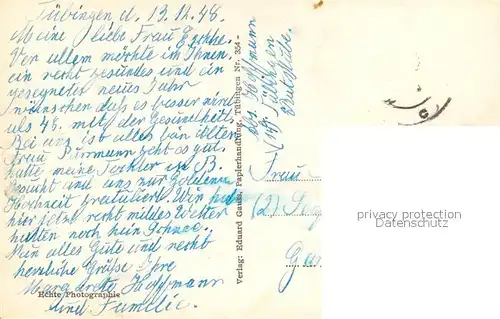 Tübingen d. 13.12.48.
Meine liebe Frau
Vor allem möchte im Ihnen
ein recht gesundes und ein
gesegnetes neues Jahr
wünschen daß es besser wird
als 48. mit der Gesundheit.
Bei uns ist alles bein Alten
Frau geht es gut.
hatte meine Tochter in B.
besucht und uns zur Goldenen
Hochzeit gratuliert. Wir
hier jetzt recht mildes Wetter
hatten noch kein Schnee.
Nun alles Gute und recht
herzliche Grüße Ihre
Margarete Hoffmann
und Familie.
Echte Photographie
Verlag: Eduard Gauss, Papierhandlung, Tübingen Nr. 354
Hoffmann
(14) Tübingen
Frau
(2)
privacy protection
Datenschutz